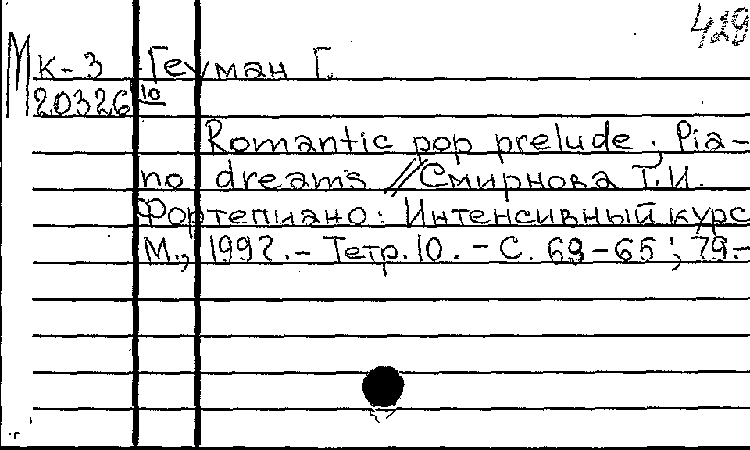 429
М К-3 Геуман Г.
20326 10
Romantic pop prelude; Pia-
no dreams // Смирнова Т.И.
Фортепиано: Интенсивный курс
М., 1992. - Тетр. 10. - С. 69-65; 79-